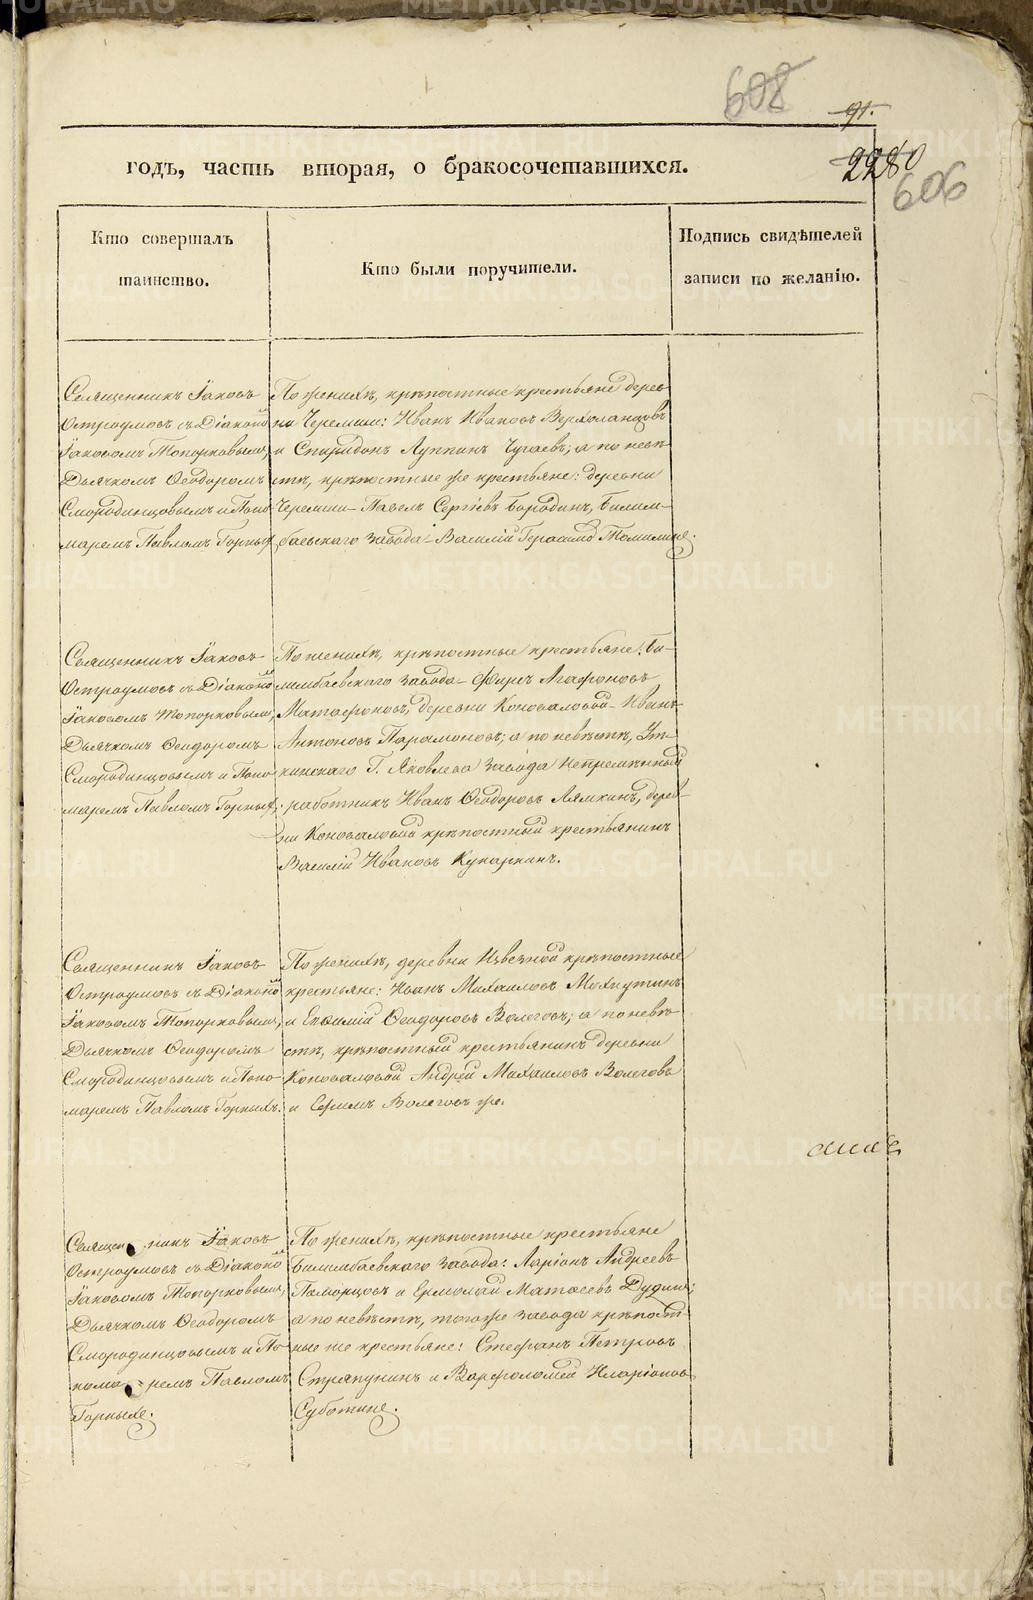 608
91.
2280
606
годъ, часть вторая, о бракосочетавшихся.
Кто совершалъ таинство.
Кто были поручители.
Подпись свидѣтелей записи по желанію.
Священникъ Іаковъ
Остроумовъ съ Діакономъ
Іаковомъ Топорковымъ,
Дьячкомъ Ѳеодоромъ
Смородинцовымъ и Поно-
маремъ Павломъ Горныхъ
По женихѣ, крѣпостные крестьяне дерев-
ни Черемши: Иванъ Ивановъ Верхоланцовъ
и Спиридонъ Луппинъ Чугаевъ; а по невѣ-
стѣ, крѣпостные же крестьяне: деревни
Черемши Павелъ Сергіевъ Бородинъ, Билим-
баевскаго завода Василій Герасимовъ Томилинъ.
Священникъ Іаковъ
Остроумовъ съ Діакономъ
Іаковомъ Топорковымъ,
Дьячкомъ Ѳеодоромъ
Смородинцовымъ и Поно-
маремъ Павломъ Горныхъ.
По женихѣ, крѣпостные крестьяне: Би-
лимбаевскаго завода Фирсъ Агафоновъ
деревни Коноваловой Иванъ
Антоновъ Парамоновъ; а по невѣстѣ, Ут-
кинскаго Г. Яковлева завода Непремѣнный
работникъ Иванъ Ѳеодоровъ Лямкинъ, дерев-
ни Коноваловой крѣпостный крестьянинъ
Василій Ивановъ Кукаркинъ.
Священникъ Іаковъ
Остроумовъ съ Діакономъ
Іаковомъ Топорковымъ,
Дьячкомъ Ѳеодоромъ
Смородинцовымъ и Поно-
маремъ Павломъ Горныхъ.
По женихѣ, деревни Извезной крѣпостные
крестьяне: Иванъ Михаиловъ Махнутинъ
и Евѳимій Ѳеодоровъ Волеговъ; а по невѣ-
стѣ, крѣпостный крестьянинъ деревни
Коноваловой Андрей Михаиловъ Волеговъ
и Ефимъ Волеговъ же.
Священникъ Іаковъ
Остроумовъ съ Діакономъ
Іаковомъ Топорковымъ,
Дьячкомъ Ѳеодоромъ
Смородинцовымъ и По-
номаремъ Павломъ
Горныхъ.
По женихѣ, крѣпостные крестьяне
Билимбаевскаго завода: Ларіонъ Андреевъ
Поморцовъ и Ермолай Матѳеевъ Дудинъ;
а по невѣстѣ, того же завода крѣпост-
ные же крестьяне: Стефанъ Петровъ
Стряпунинъ и Варфоломей Иларіоновъ
Суботинъ.
METRIKI.GASO-URAL.RU